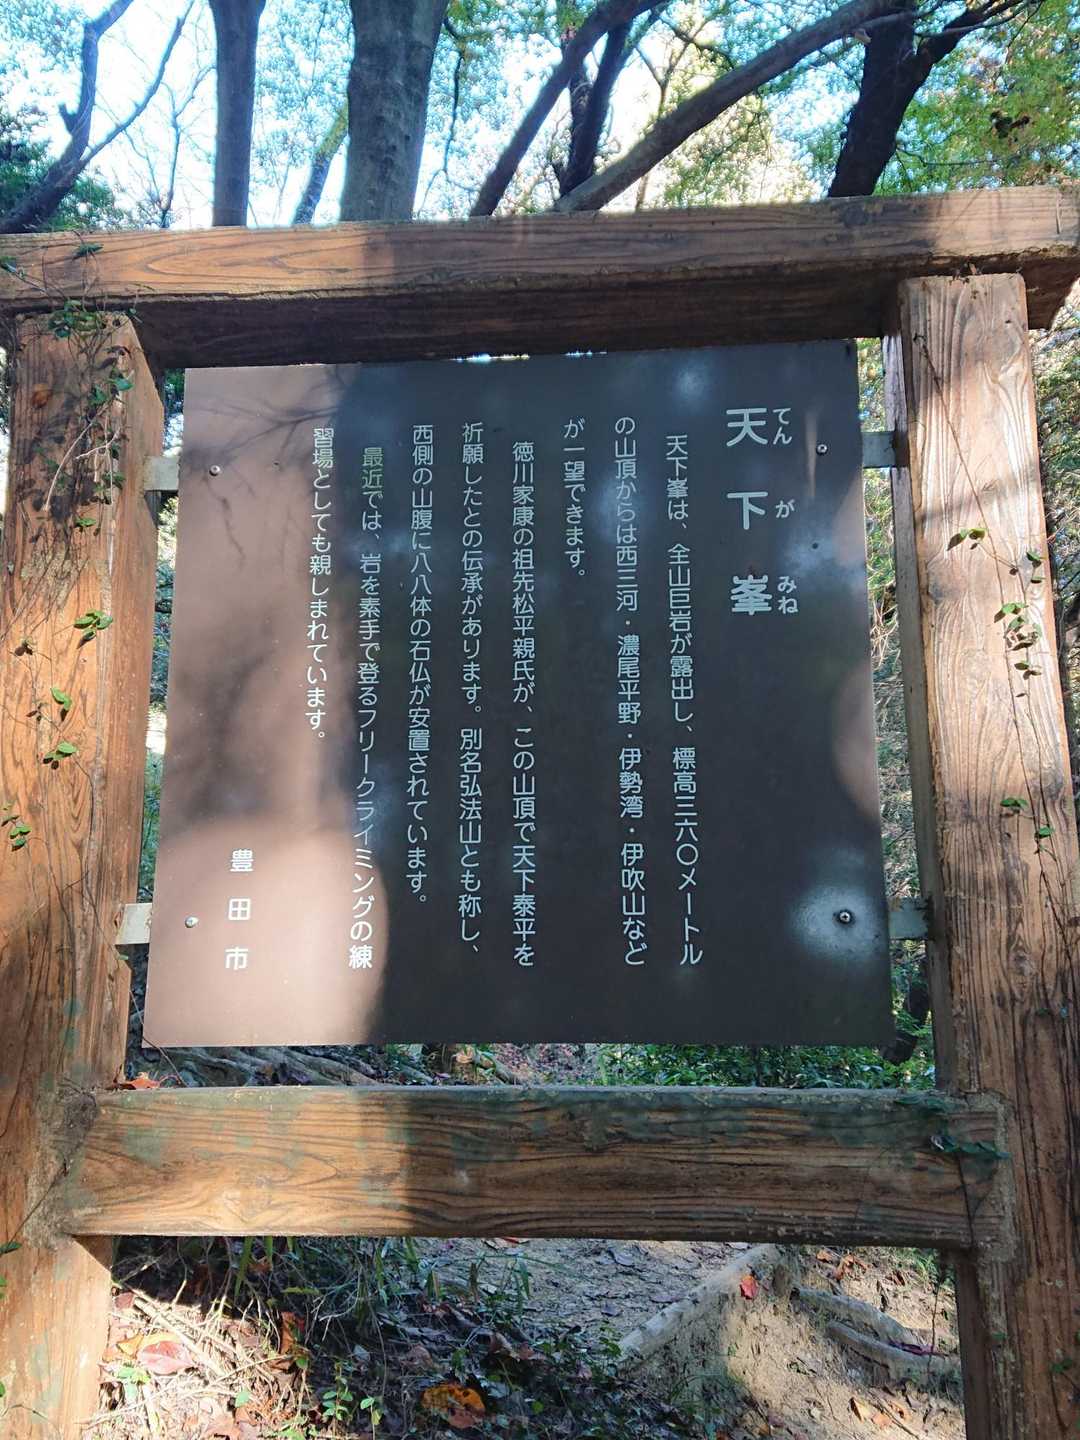 天下峯
てんがみね
天下峯は、全山巨岩が露出し、標高三六〇メートル
の山頂からは西三河・濃尾平野・伊勢湾・伊吹山など
が一望できます。
徳川家康の祖先松平親氏が、この山頂で天下泰平を
祈願したとの伝承があります。別名弘法山とも称し、
西側の山腹に八八体の石仏が安置されています。
最近では、岩を素手で登るフリークライミングの練
習場としても親しまれています。
豊田市